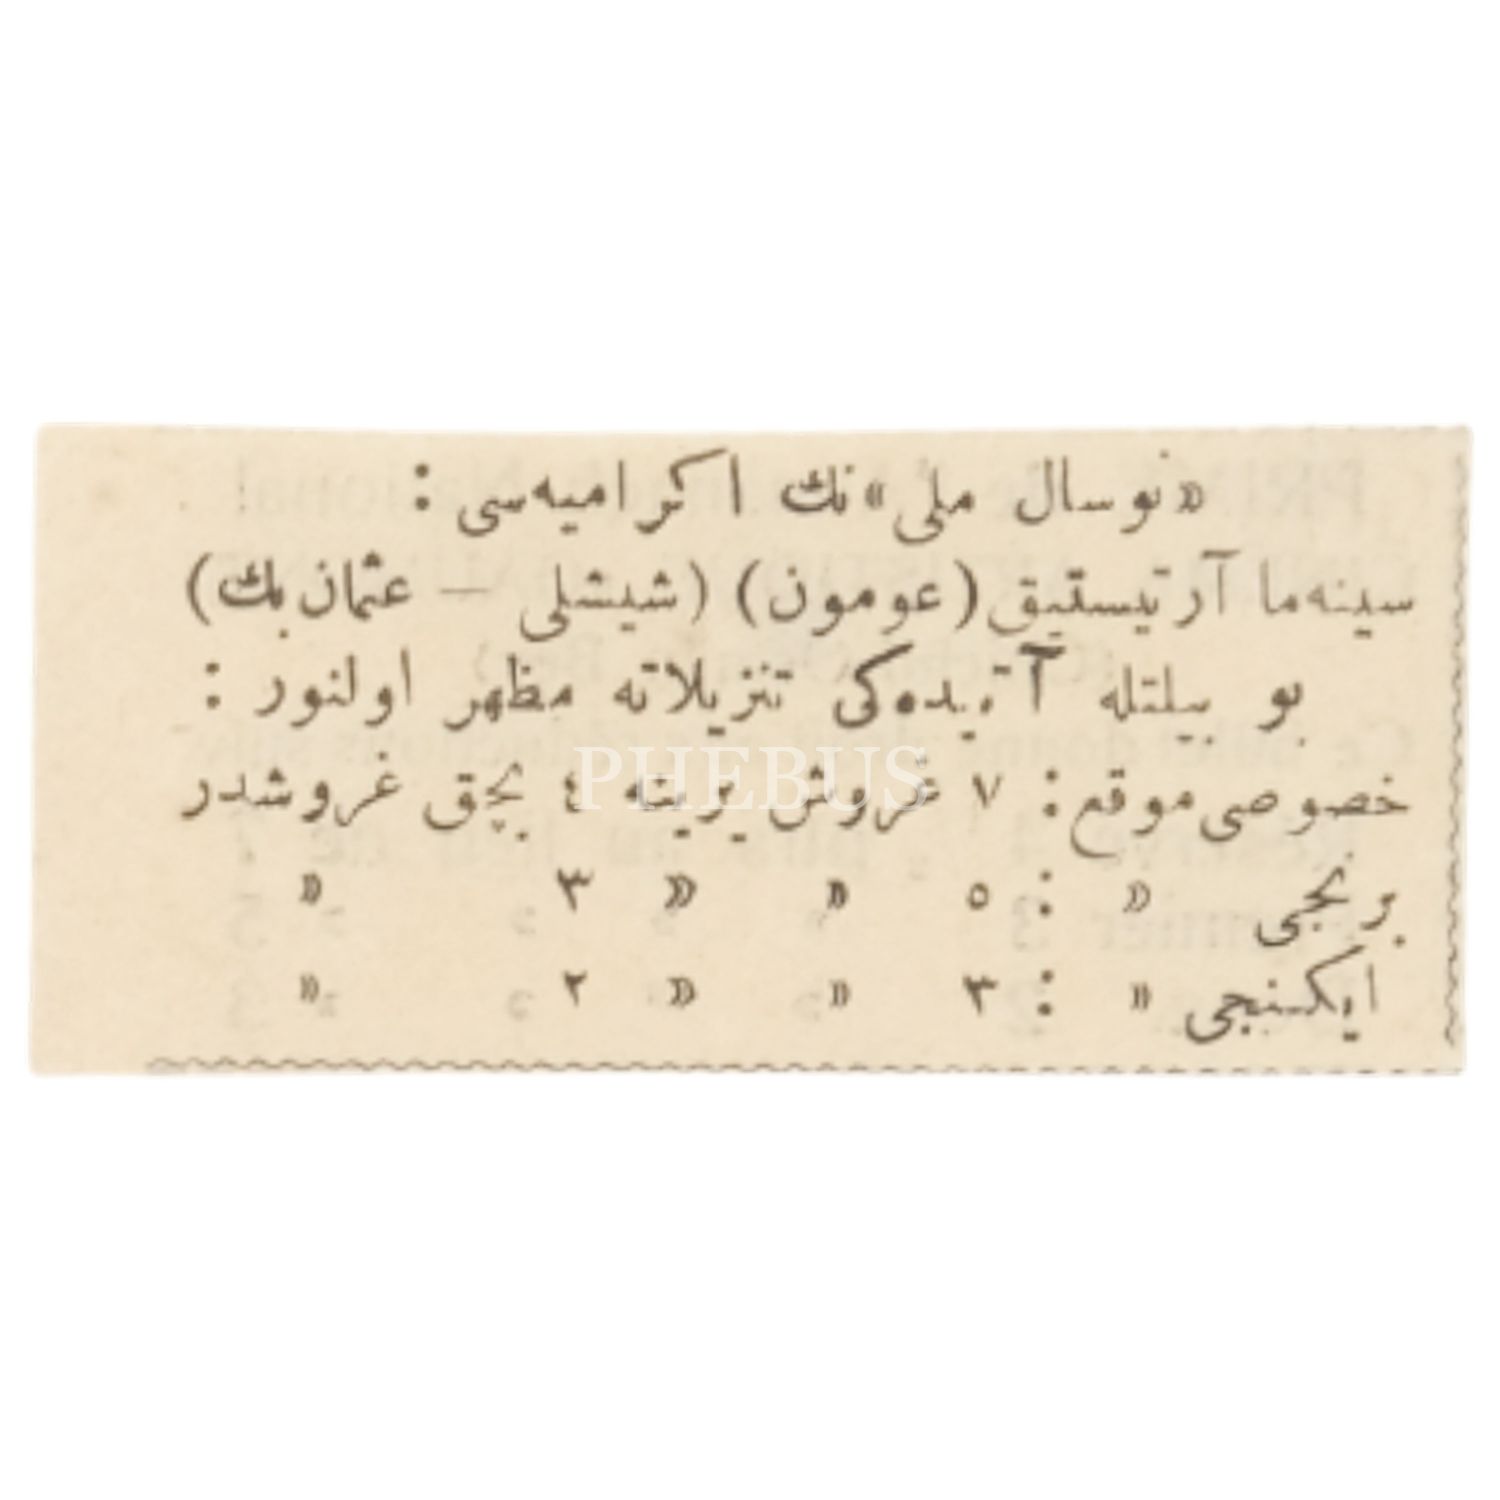 «نوسال ملی»نك اكرامیه‌سی :
سینه‌ما آرتیستیق (عومون) (شیشلی – عثمان بك)
بو بیلتله آتیده‌كی تنزیلاته مظهر اولنور :
خصوصی موقع : ٧ غروش یرینه ٤ بچق غروشدر
برنجی » : ٥ » » ٣ »
ایكنجی » : ٣ » » ٢ »
PHEBUS